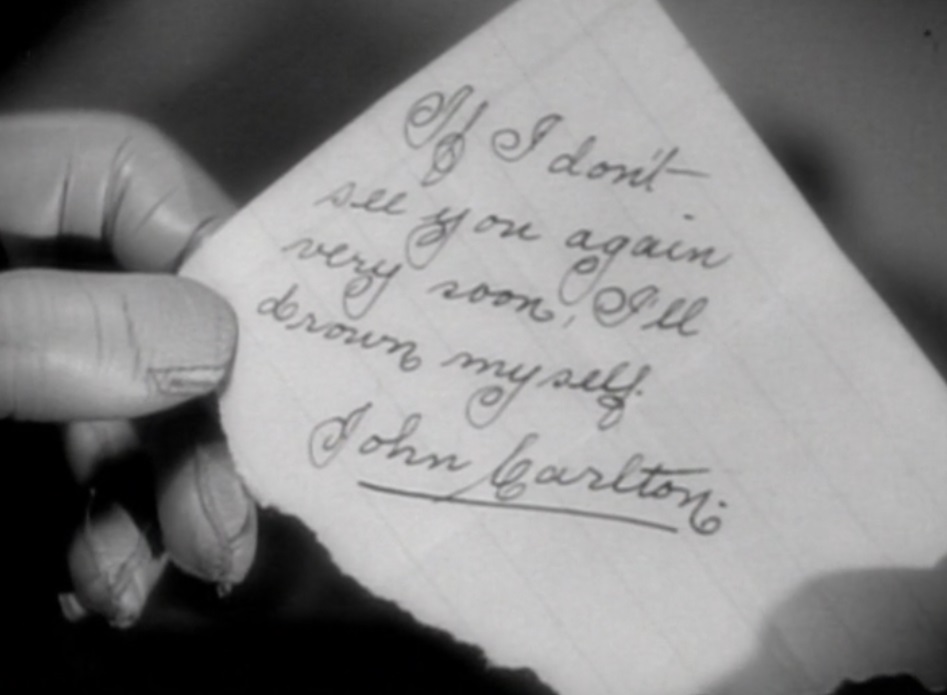 If I don't
see you again
very soon, I'll
drown myself.
John Carlton.